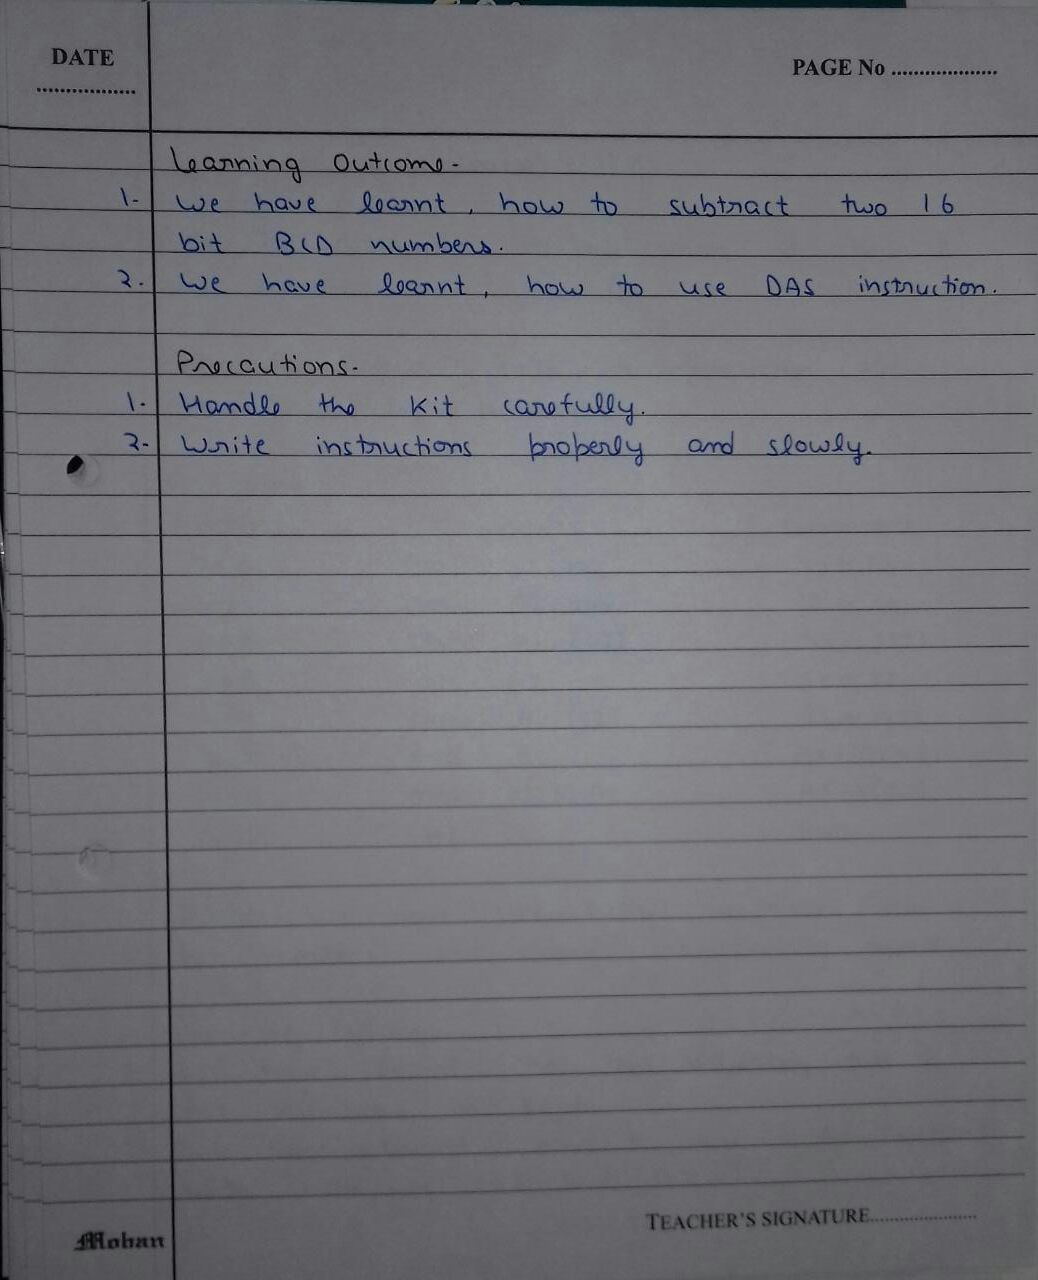 DATE
PAGE No ....................
..................
Learning Outcome-
1- We have learnt, how to subtract two 16
bit BCD numbers.
2. We have learnt, how to use DAS instruction.
Precautions-
1. Handle the Kit carefully.
2- Write instructions properly and slowly.
TEACHER'S SIGNATURE......................
Mohan